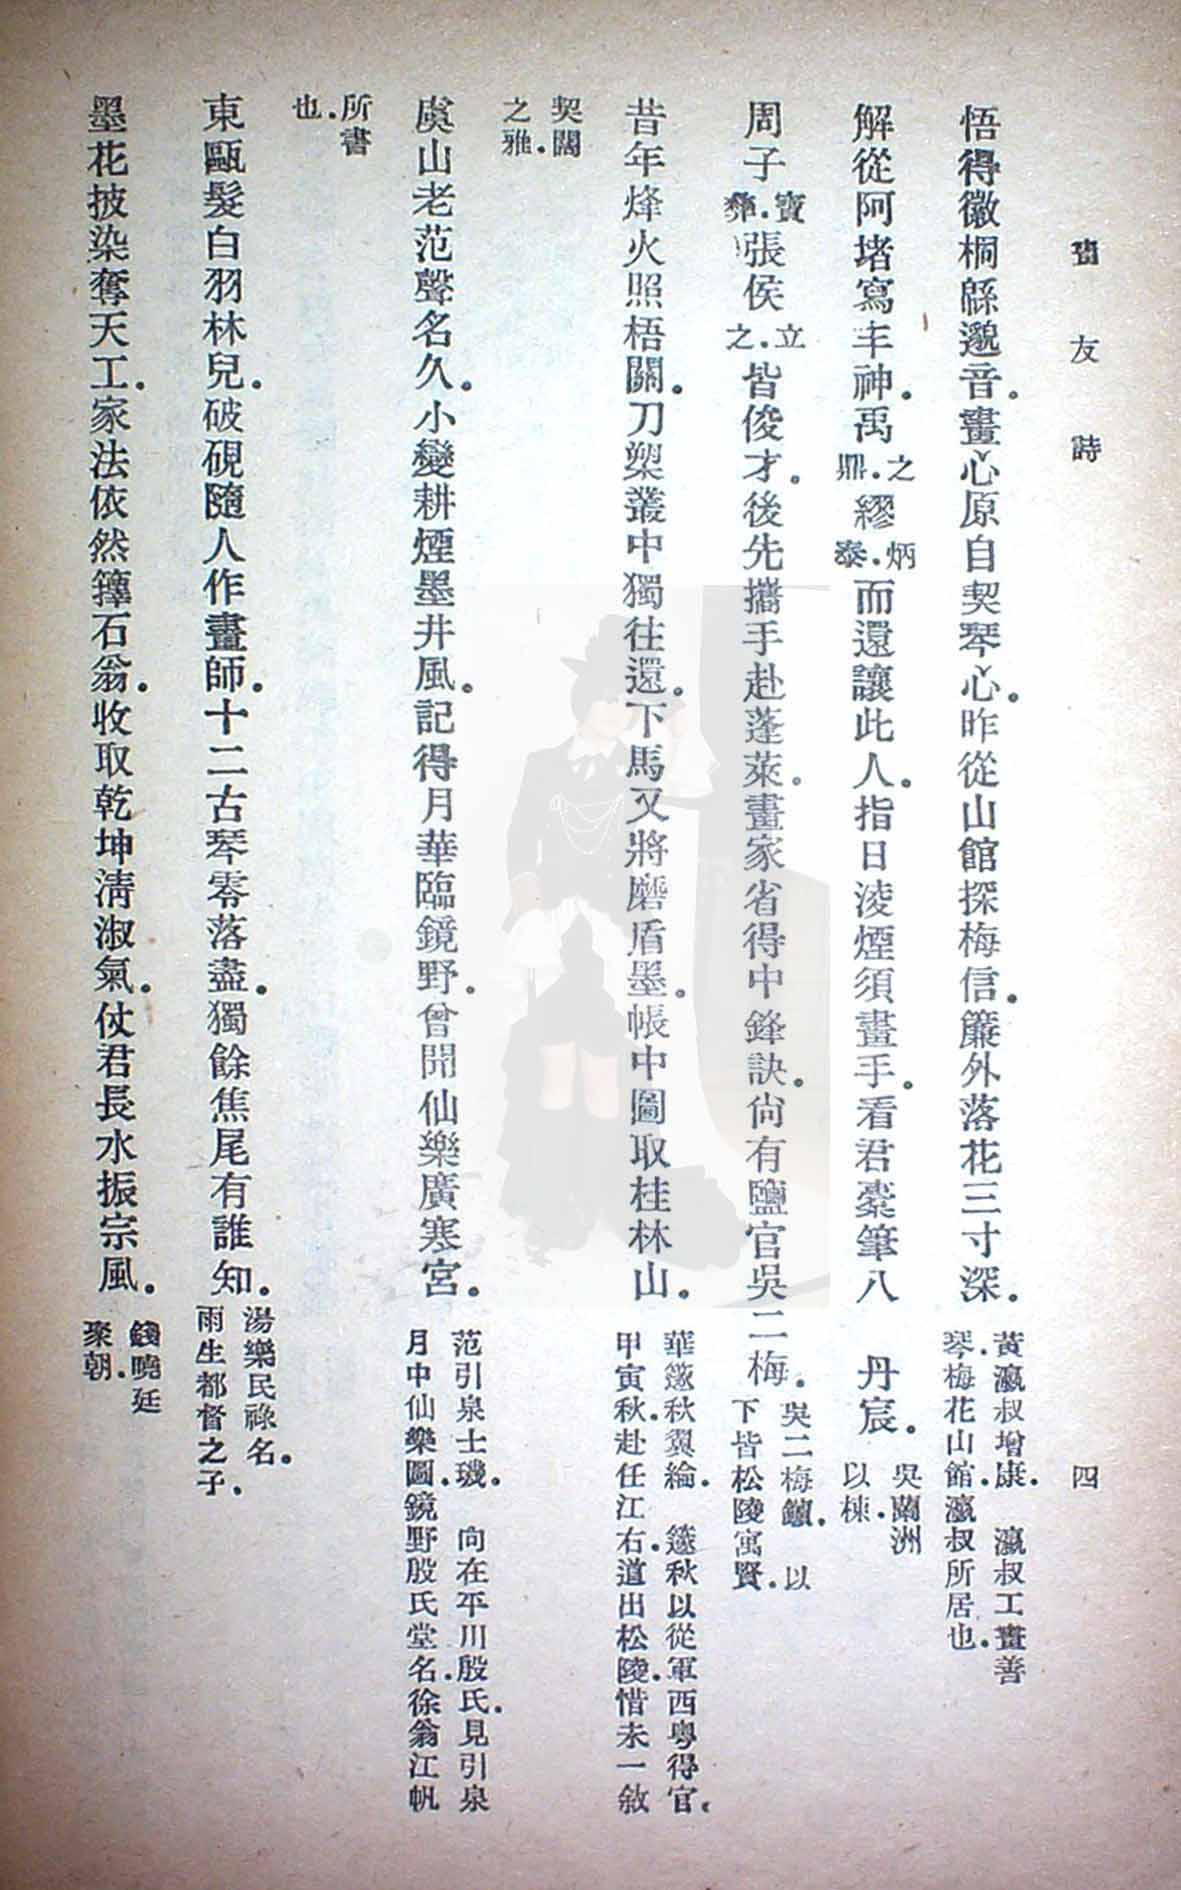 畫友詩 四
悟得徽桐緜邈音。畫心原自契琴心。昨從山館探梅信。簾外落花三寸深。黃瀛叔增康。瀛叔工畫善琴。梅花山館。瀛叔所居也。
解從阿堵寫丰神。禹之鼎。繆炳泰。而還讓此人。指日淩煙須畫手。看君橐筆八丹宸。吳蘭洲以棟。
周子寶彝。張侯立之。皆俊才。後先攜手赴蓬萊。畫家省得中鋒訣。尚有鹽官吳二梅。吳二梅。以下皆松陵寓賢。
昔年烽火照梧關。刀槊叢中獨往還。下馬又將磨盾墨。帳中圖取桂林山。華篴秋翼綸。篴秋以從軍西粵得官。甲寅秋。赴任江右。道出松陵。惜未一敘
契闊之雅。
虞山老范聲名久。小變耕煙墨井風。記得月華臨鏡野。曾開仙樂廣寒宮。范引泉士璣。向在平川殷氏。見引泉月中仙樂圖。鏡野殷氏堂名。徐翁江帆
所書也。
東甌髮白羽林兒。破硯隨人作畫師。十二古琴零落盡。獨餘焦尾有誰知。湯樂民祿名。雨生都督之子。
墨花披染奪天工。家法依然籜石翁。收取乾坤清淑氣。仗君長水振宗風。錢曉廷聚朝。